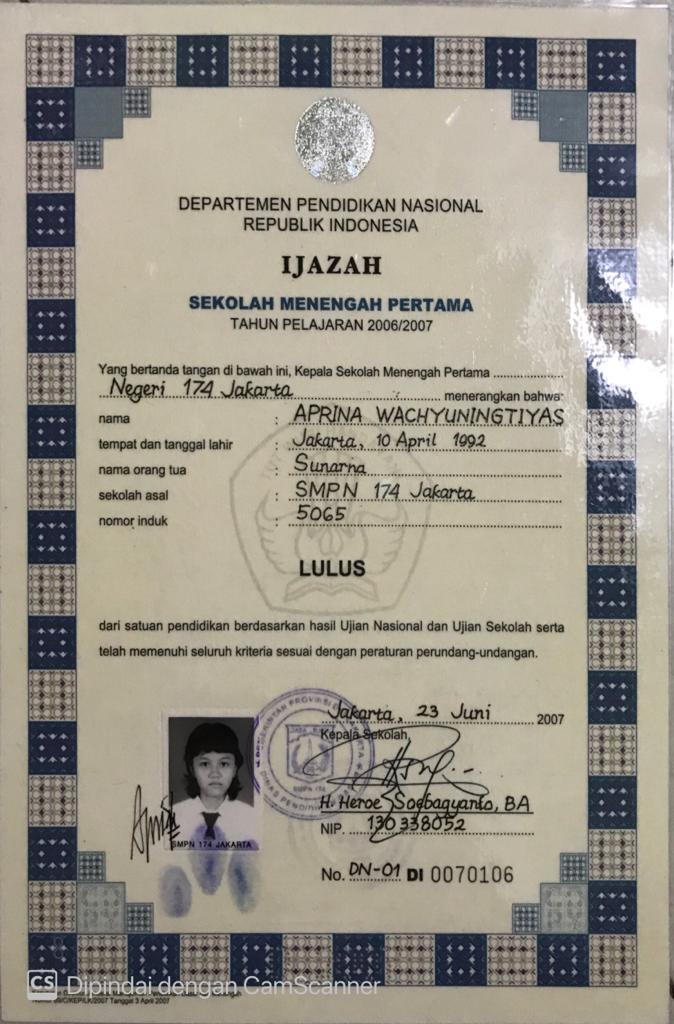 DEPARTEMEN PENDIDIKAN NASIONAL
REPUBLIK INDONESIA
IJAZAH
SEKOLAH MENENGAH PERTAMA
TAHUN PELAJARAN 2006/2007
Yang bertanda tangan di bawah ini, Kepala Sekolah Menengah Pertama
Negeri 174 Jakarta menerangkan bahwa:
nama : APRINA WACHYUNINGTIYAS
tempat dan tanggal lahir : Jakarta, 10 April 1992
nama orang tua : Sunarna
sekolah asal : SMPN 174 Jakarta
nomor induk : 5065
LULUS
dari satuan pendidikan berdasarkan hasil Ujian Nasional dan Ujian Sekolah serta
telah memenuhi seluruh kriteria sesuai dengan peraturan perundang-undangan.
Jakarta, 23 Juni 2007
Kepala Sekolah,
H. Heroe Soebagyanto, BA
NIP. 130338052
SMPN 174 JAKARTA
No. DN-01 DI 0070106
CS Dipindai dengan CamScanner
Tanggal 3 April 2007